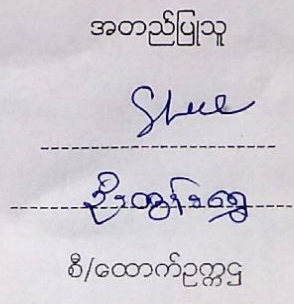 အတည်ပြုသူ
ဦးထွန်းရွှေ
စီ/ထောက်ဥက္ကဋ္ဌ